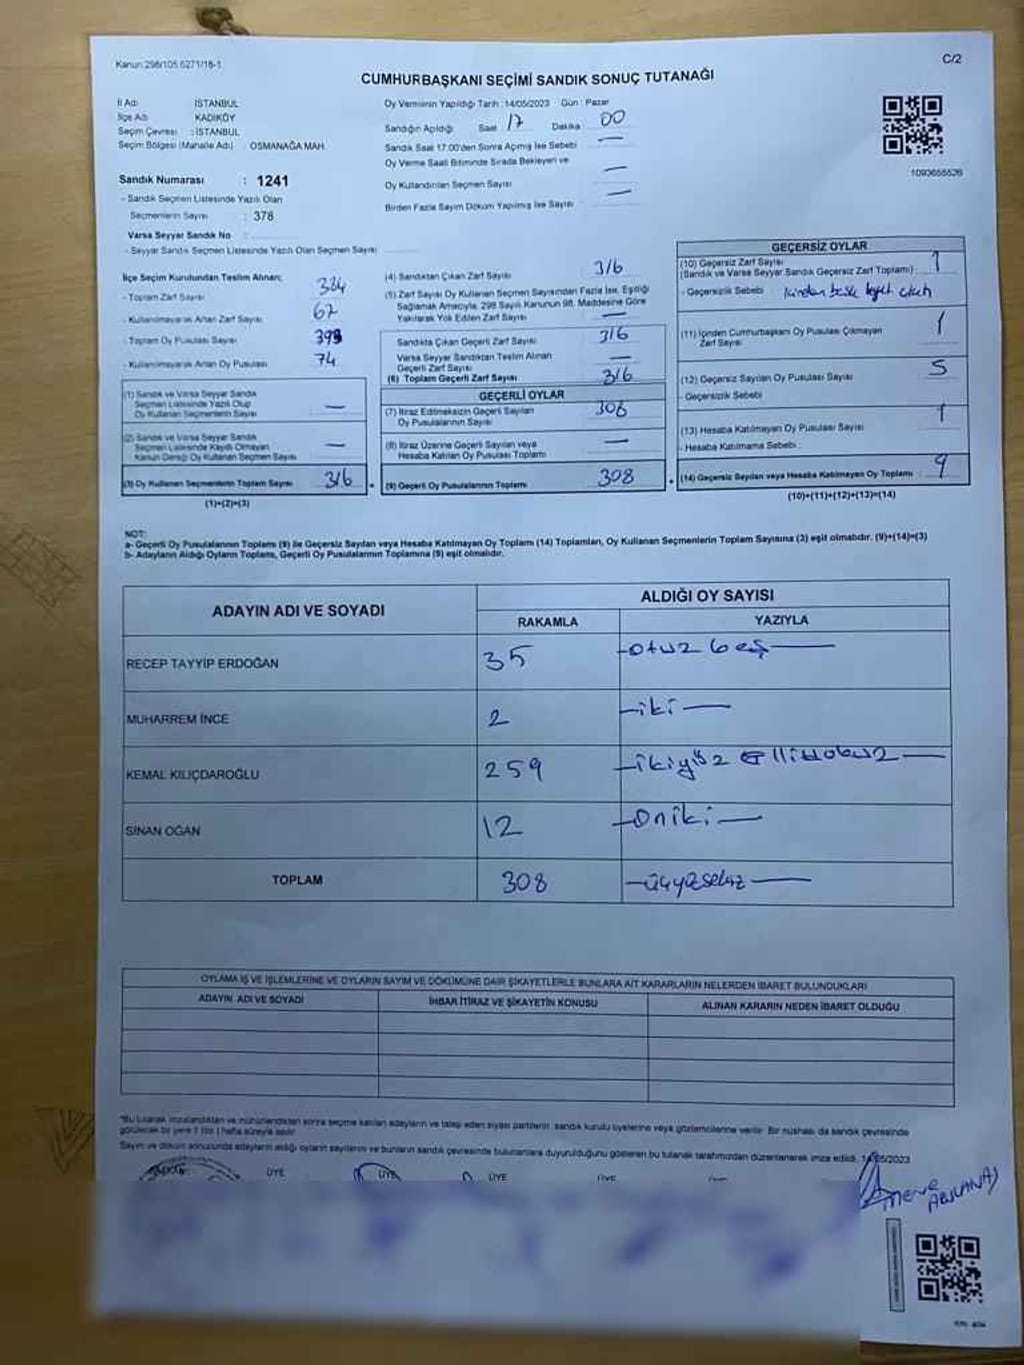 Kanun:298/105.6271/18-1
C/2
CUMHURBAŞKANI SEÇİMİ SANDIK SONUÇ TUTANAĞI
İl Adı İSTANBUL
İlçe Adı KADIKÖY
Seçim Çevresi : İSTANBUL
Seçim Bölgesi (Mahalle Adı) OSMANAĞA MAH.
Sandık Numarası : 1241
- Sandık Seçmen Listesinde Yazılı Olan
Seçmenlerin Sayısı : 378
Varsa Seyyar Sandık No :
- Seyyar Sandık Seçmen Listesinde Yazılı Olan Seçmen Sayısı
Oy Vermenin Yapıldığı Tarih : 14/05/2023 Gün : Pazar
Sandığın Açıldığı Saat 17 Dakika 00
Sandık Saat 17.00'den Sonra Açılmış İse Sebebi —
Oy Verme Saati Bitiminde Sırada Bekleyen ve
Oy Kullandırılan Seçmen Sayısı —
Birden Fazla Sayım Döküm Yapılmış İse Sayısı —
1093655526
İlçe Seçim Kurulundan Teslim Alınan;
- Toplam Zarf Sayısı 384
- Kullanılmayarak Artan Zarf Sayısı 67
- Toplam Oy Pusulası Sayısı
- Kullanılmayarak Artan Oy Pusulası 74
(1) Sandık ve Varsa Seyyar Sandık
Seçmen Listesinde Yazılı Olup
Oy Kullanan Seçmenlerin Sayısı —
(2) Sandık ve Varsa Seyyar Sandık
Seçmen Listesinde Kaydı Olmayan
Kanun Gereği Oy Kullanan Seçmen Sayısı —
(3) Oy Kullanan Seçmenlerin Toplam Sayısı 316
(1)+(2)=(3)
(4) Sandıktan Çıkan Zarf Sayısı 316
(5) Zarf Sayısı Oy Kullanan Seçmen Sayısından Fazla İse, Eşitliği
Sağlamak Amacıyla, 298 Sayılı Kanunun 98. Maddesine Göre
Yakılarak Yok Edilen Zarf Sayısı —
Sandıkta Çıkan Geçerli Zarf Sayısı 316
Varsa Seyyar Sandıktan Teslim Alınan
Geçerli Zarf Sayısı —
(6) Toplam Geçerli Zarf Sayısı 316
GEÇERLİ OYLAR
(7) İtiraz Edilmeksizin Geçerli Sayılan
Oy Pusulalarının Sayısı 308
(8) İtiraz Üzerine Geçerli Sayılan veya
Hesaba Katılan Oy Pusulası Toplamı —
(9) Geçerli Oy Pusulalarının Toplamı 308
GEÇERSİZ OYLAR
(10) Geçersiz Zarf Sayısı
(Sandık ve Varsa Seyyar Sandık Geçersiz Zarf Toplamı) 1
- Geçersizlik Sebebi
(11) İçinden Cumhurbaşkanı Oy Pusulası Çıkmayan
Zarf Sayısı 1
(12) Geçersiz Sayılan Oy Pusulası Sayısı 5
- Geçersizlik Sebebi
(13) Hesaba Katılmayan Oy Pusulası Sayısı 1
- Hesaba Katılmama Sebebi :
(14) Geçersiz Sayılan veya Hesaba Katılmayan Oy Toplamı 9
(10)+(11)+(12)+(13)=(14)
NOT:
a- Geçerli Oy Pusulalarının Toplamı (9) ile Geçersiz Sayılan veya Hesaba Katılmayan Oy Toplamı (14) Toplamları, Oy Kullanan Seçmenlerin Toplam Sayısına (3) eşit olmalıdır. (9)+(14)=(3)
b- Adayların Aldığı Oyların Toplamı, Geçerli Oy Pusulalarının Toplamına (9) eşit olmalıdır.
ADAYIN ADI VE SOYADI ALDIĞI OY SAYISI
RAKAMLA YAZIYLA
RECEP TAYYİP ERDOĞAN 35 —otuz beş—
MUHARREM İNCE 2 —iki—
KEMAL KILIÇDAROĞLU 259 —ikiyüz ellidokuz—
SİNAN OĞAN 12 —oniki—
TOPLAM 308 —üçyüzsekiz—
OYLAMA İŞ VE İŞLEMLERİNE VE OYLARIN SAYIM VE DÖKÜMÜNE DAİR ŞİKAYETLERLE BUNLARA AİT KARARLARIN NELERDEN İBARET BULUNDUKLARI
ADAYIN ADI VE SOYADI İHBAR İTİRAZ VE ŞİKAYETİN KONUSU ALINAN KARARIN NEDEN İBARET OLDUĞU
*Bu tutanak imzalandıktan ve mühürlendikten sonra seçime katılan adayların ve talep eden siyasi partilerin, sandık kurulu üyelerine veya gözlemcilerine verilir. Bir nüshası da sandık çevresinde
görülecek bir yere 1 (bir) hafta süreyle asılır.
Sayım ve döküm sonucunda adayların aldığı oyların sayılarını ve bunların sandık çevresinde bulunanlara duyurulduğunu gösteren bu tutanak tarafımızdan düzenlenerek imza edildi. 14/05/2023
ÜYE ÜYE ÜYE
Merve